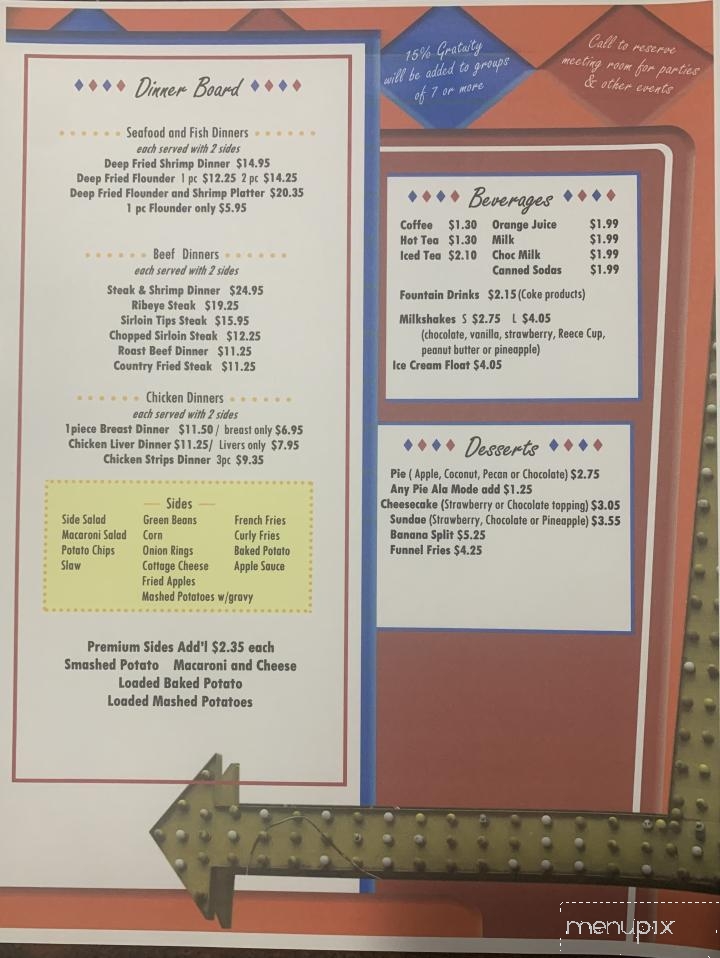 15% Gratuity
will be added to groups
of 7 or more
Call to reserve
meeting room for parties
& other events
Dinner Board
Seafood and Fish Dinners
each served with 2 sides
Deep Fried Shrimp Dinner $14.95
Deep Fried Flounder 1 pc $12.25 2 pc $14.25
Deep Fried Flounder and Shrimp Platter $20.35
1 pc Flounder only $5.95
Beef Dinners
each served with 2 sides
Steak & Shrimp Dinner $24.95
Ribeye Steak $19.25
Sirloin Tips Steak $15.95
Chopped Sirloin Steak $12.25
Roast Beef Dinner $11.25
Country Fried Steak $11.25
Chicken Dinners
each served with 2 sides
1piece Breast Dinner $11.50 / breast only $6.95
Chicken Liver Dinner $11.25/ Livers only $7.95
Chicken Strips Dinner 3pc $9.35
Sides
Side Salad Green Beans French Fries
Macaroni Salad Corn Curly Fries
Potato Chips Onion Rings Baked Potato
Slaw Cottage Cheese Apple Sauce
Fried Apples
Mashed Potatoes w/gravy
Premium Sides Add'l $2.35 each
Smashed Potato Macaroni and Cheese
Loaded Baked Potato
Loaded Mashed Potatoes
Beverages
Coffee $1.30 Orange Juice $1.99
Hot Tea $1.30 Milk $1.99
Iced Tea $2.10 Choc Milk $1.99
Canned Sodas $1.99
Fountain Drinks $2.15 (Coke products)
Milkshakes S $2.75 L $4.05
(chocolate, vanilla, strawberry, Reece Cup,
peanut butter or pineapple)
Ice Cream Float $4.05
Desserts
Pie ( Apple, Coconut, Pecan or Chocolate) $2.75
Any Pie Ala Mode add $1.25
Cheesecake (Strawberry or Chocolate topping) $3.05
Sundae (Strawberry, Chocolate or Pineapple) $3.55
Banana Split $5.25
Funnel Fries $4.25
menupix